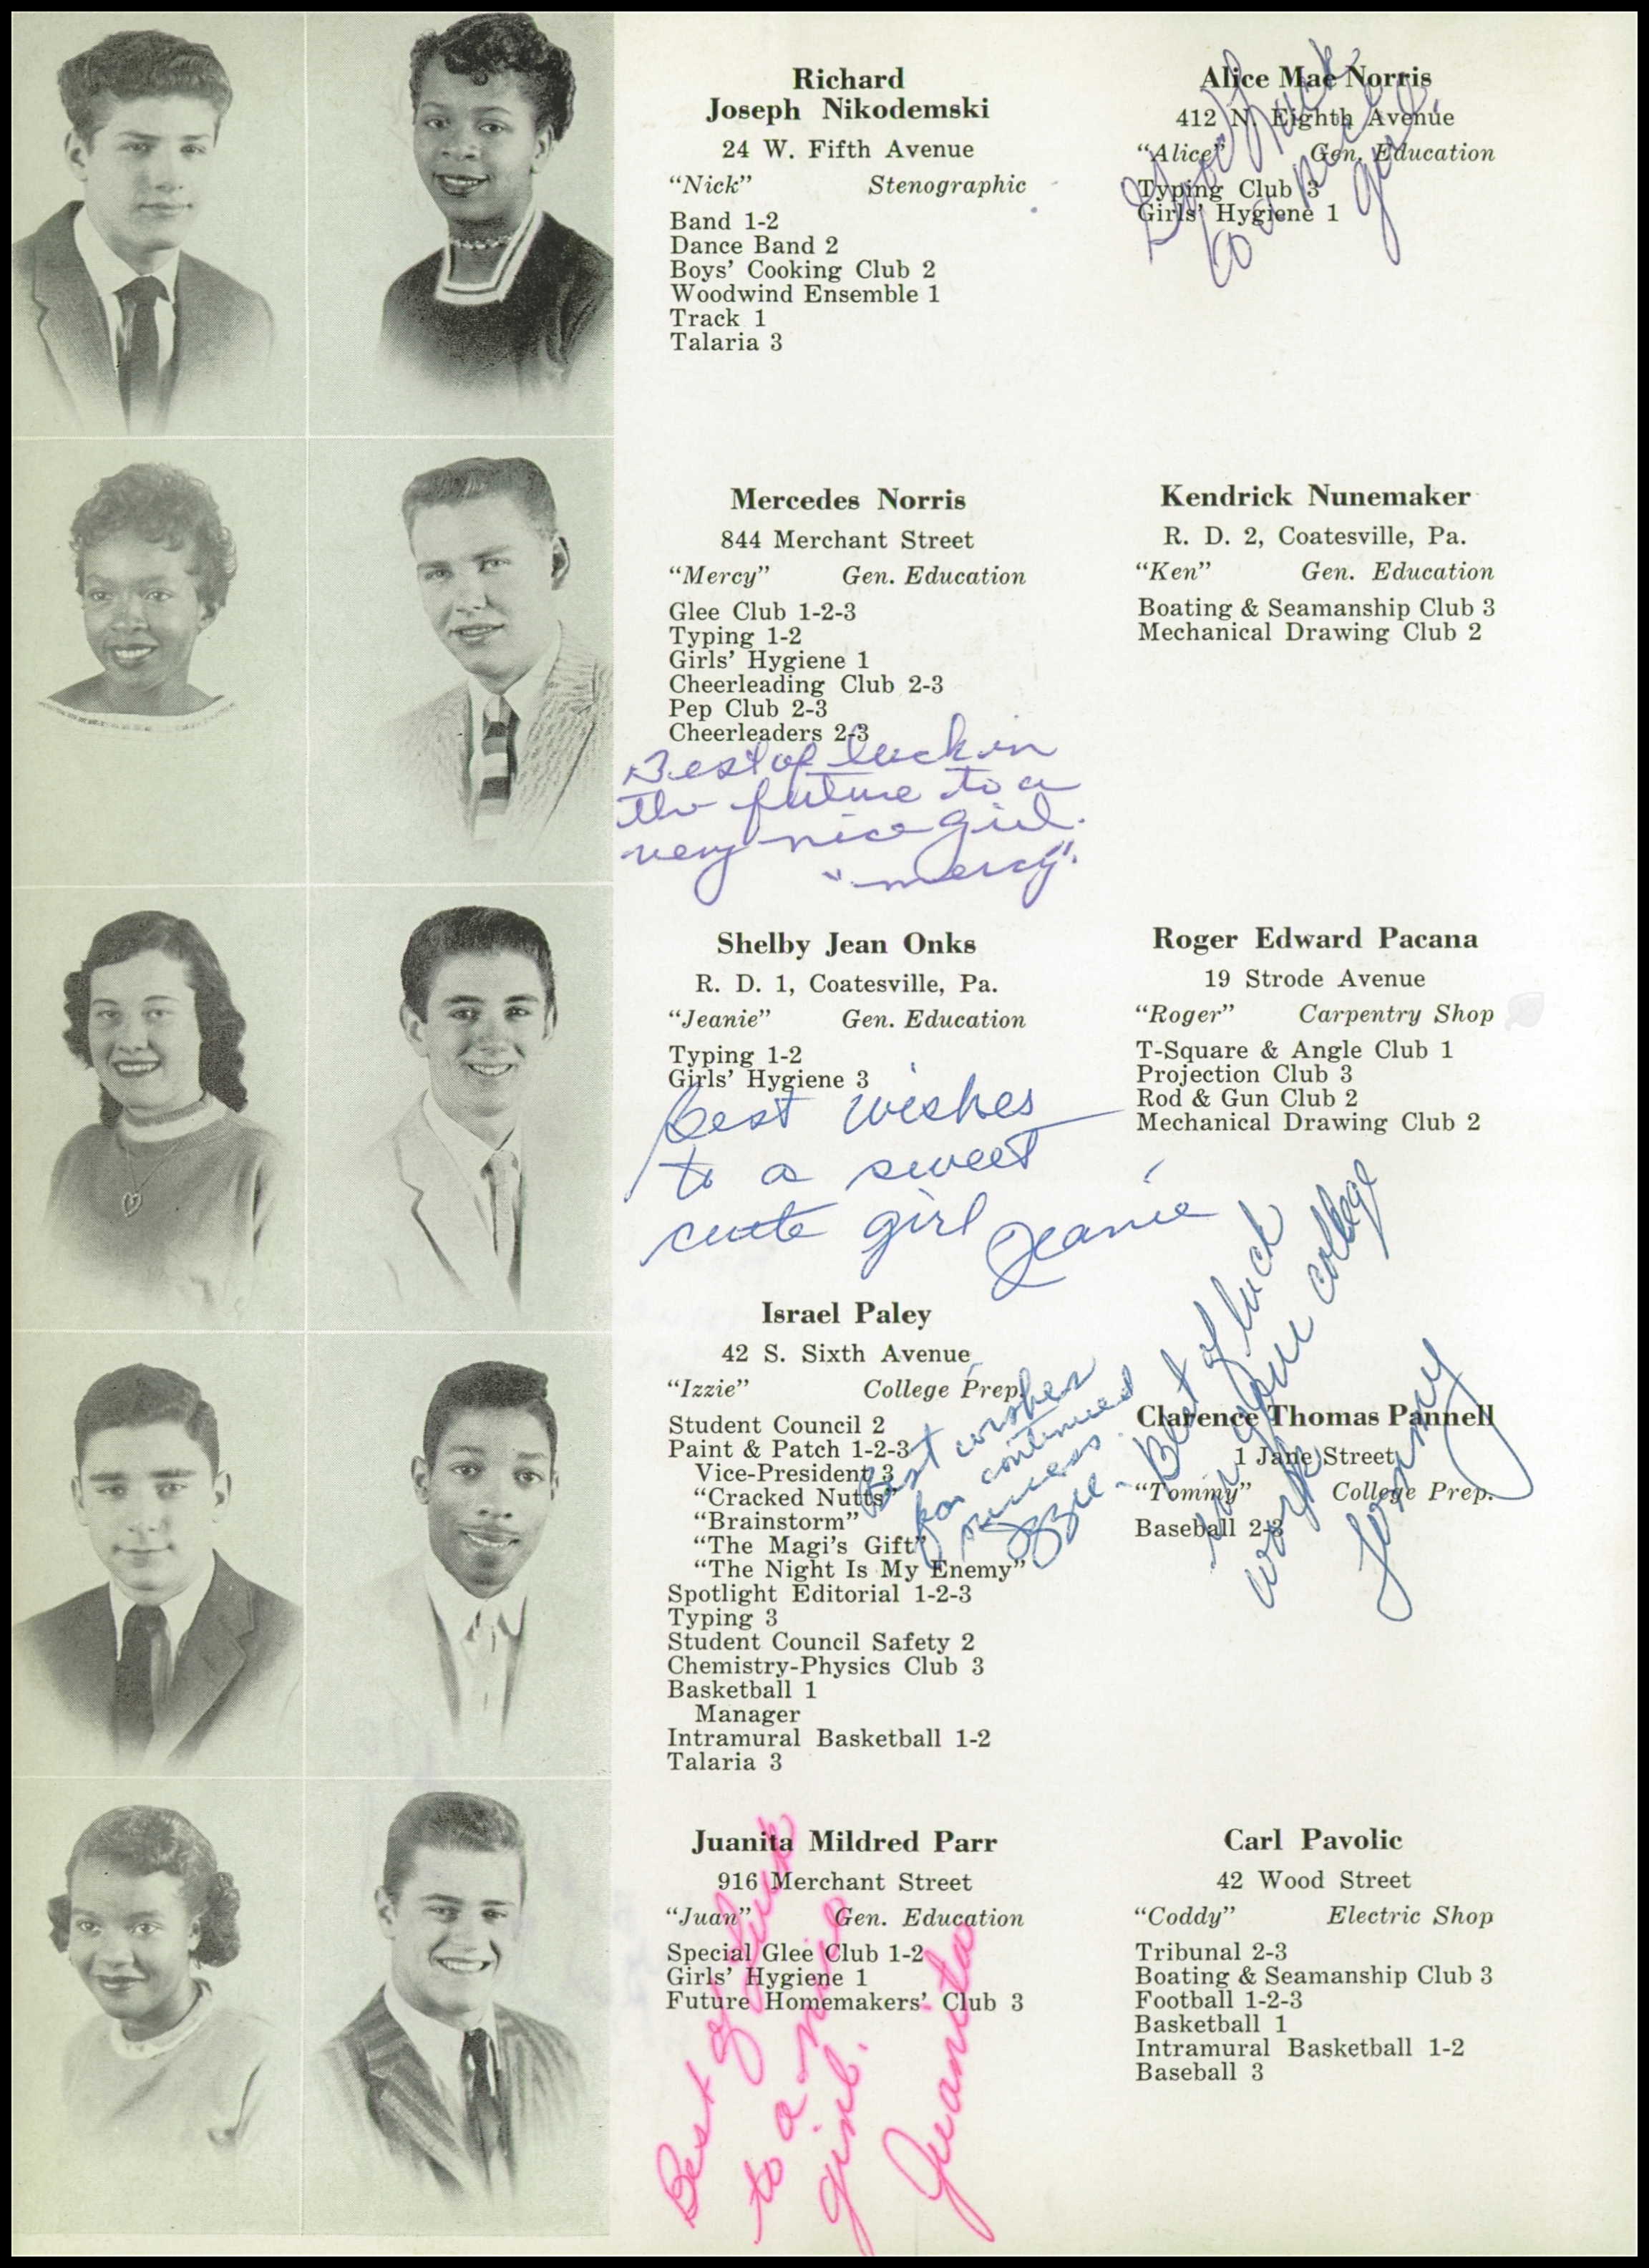 Richard
Joseph Nikodemski
24 W. Fifth Avenue
“Nick” Stenographic
Band 1-2
Dance Band 2
Boys’ Cooking Club 2
Woodwind Ensemble 1
Track 1
Talaria 3
Alice Mae Norris
412 N. Eighth Avenue
“Alice” Gen. Education
Typing Club 3
Girls’ Hygiene 1
Good luck
to a nice
girl.
Mercedes Norris
844 Merchant Street
“Mercy” Gen. Education
Glee Club 1-2-3
Typing 1-2
Girls’ Hygiene 1
Cheerleading Club 2-3
Pep Club 2-3
Cheerleaders 2-3
Best of luck in
the future to a
very nice girl.
“mercy”.
Kendrick Nunemaker
R. D. 2, Coatesville, Pa.
“Ken” Gen. Education
Boating & Seamanship Club 3
Mechanical Drawing Club 2
Shelby Jean Onks
R. D. 1, Coatesville, Pa.
“Jeanie” Gen. Education
Typing 1-2
Girls’ Hygiene 3
Best wishes
to a sweet
cute girl
Jeanie
Roger Edward Pacana
19 Strode Avenue
“Roger” Carpentry Shop
T-Square & Angle Club 1
Projection Club 3
Rod & Gun Club 2
Mechanical Drawing Club 2
Israel Paley
42 S. Sixth Avenue
“Izzie” College Prep.
Student Council 2
Paint & Patch 1-2-3
Vice-President 3
“Cracked Nutts”
“Brainstorm”
“The Magi’s Gift”
“The Night Is My Enemy”
Spotlight Editorial 1-2-3
Typing 3
Student Council Safety 2
Chemistry-Physics Club 3
Basketball 1
Manager
Intramural Basketball 1-2
Talaria 3
Best wishes
for continued
success.
Izzie
Clarence Thomas Pannell
1 Jane Street
“Tommy” College Prep.
Baseball 2-3
Best of luck
in your college
work
Tommy
Juanita Mildred Parr
916 Merchant Street
“Juan” Gen. Education
Special Glee Club 1-2
Girls’ Hygiene 1
Future Homemakers’ Club 3
Best of luck
to a nice
girl.
Juanita
Carl Pavolic
42 Wood Street
“Coddy” Electric Shop
Tribunal 2-3
Boating & Seamanship Club 3
Football 1-2-3
Basketball 1
Intramural Basketball 1-2
Baseball 3